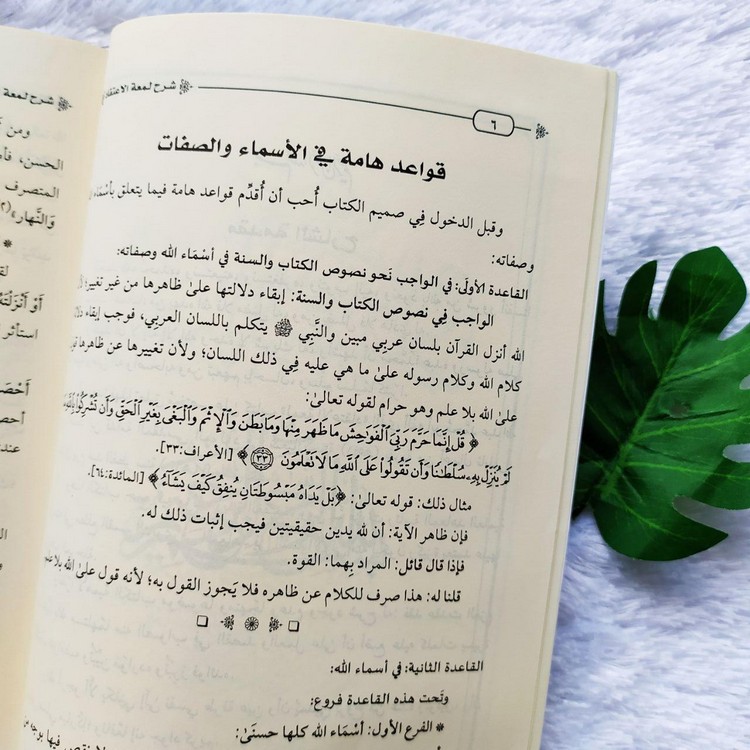 شرح لمعة الاعتقاد
٦
قواعد هامة في الأسماء والصفات
وقبل الدخول فِي صميم الكتاب أُحب أن أُقدِّم قواعد هامة فيما يتعلق بأسْمَاء
وصفاته:
القاعدة الأولَى: في الواجب نَحو نصوص الكتاب والسنة في أسْمَاء الله وصفاته:
الواجب فِي نصوص الكتاب والسنة: إبقاء دلالتها علىٰ ظاهرها من غير تغيير؛
الله أنزل القرآن بلسان عربي مبين والنَّبِي ﷺ يتكلم باللسان العربي، فوجب إبقاء
كلام الله وكلام رسوله علىٰ ما هي عليه فِي ذلك اللسان؛ ولأن تغييرها عن ظاهرها
علىٰ الله بلا علم وهو حرام لقوله تعالىٰ:
﴿قُلْ إِنَّمَا حَرَّمَ رَبِّيَ الْفَوَاحِشَ مَا ظَهَرَ مِنْهَا وَمَا بَطَنَ وَالْإِثْمَ وَالْبَغْيَ بِغَيْرِ الْحَقِّ وَأَن تُشْرِكُوا بِاللَّهِ
لَمْ يُنَزِّلْ بِهِ سُلْطَانًا وَأَن تَقُولُوا عَلَى اللَّهِ مَا لَا تَعْلَمُونَ ٣٣﴾ [الأعراف:٣٣].
مثال ذلك: قوله تعالىٰ: ﴿بَلْ يَدَاهُ مَبْسُوطَتَانِ يُنفِقُ كَيْفَ يَشَاءُ﴾ [المائدة:٦٤].
فإن ظاهر الآية: أن لله يدين حقيقيتين فيجب إثبات ذلك له.
فإذا قال قائل: المراد بِهما: القوة.
قلنا له: هذا صرف للكلام عن ظاهره فلا يَجوز القول به؛ لأنه قول علىٰ الله بلا
القاعدة الثانية: في أسماء الله:
وتَحت هذه القاعدة فروع:
* الفرع الأول: أسْمَاء الله كلها حسنَىٰ:
شرح لمعة
ومن
الحسن،
المتصرف
وَالنَّهار»
*
أَوْ أَنْزَلْتَهُ
استأثر
أحصـ
عند